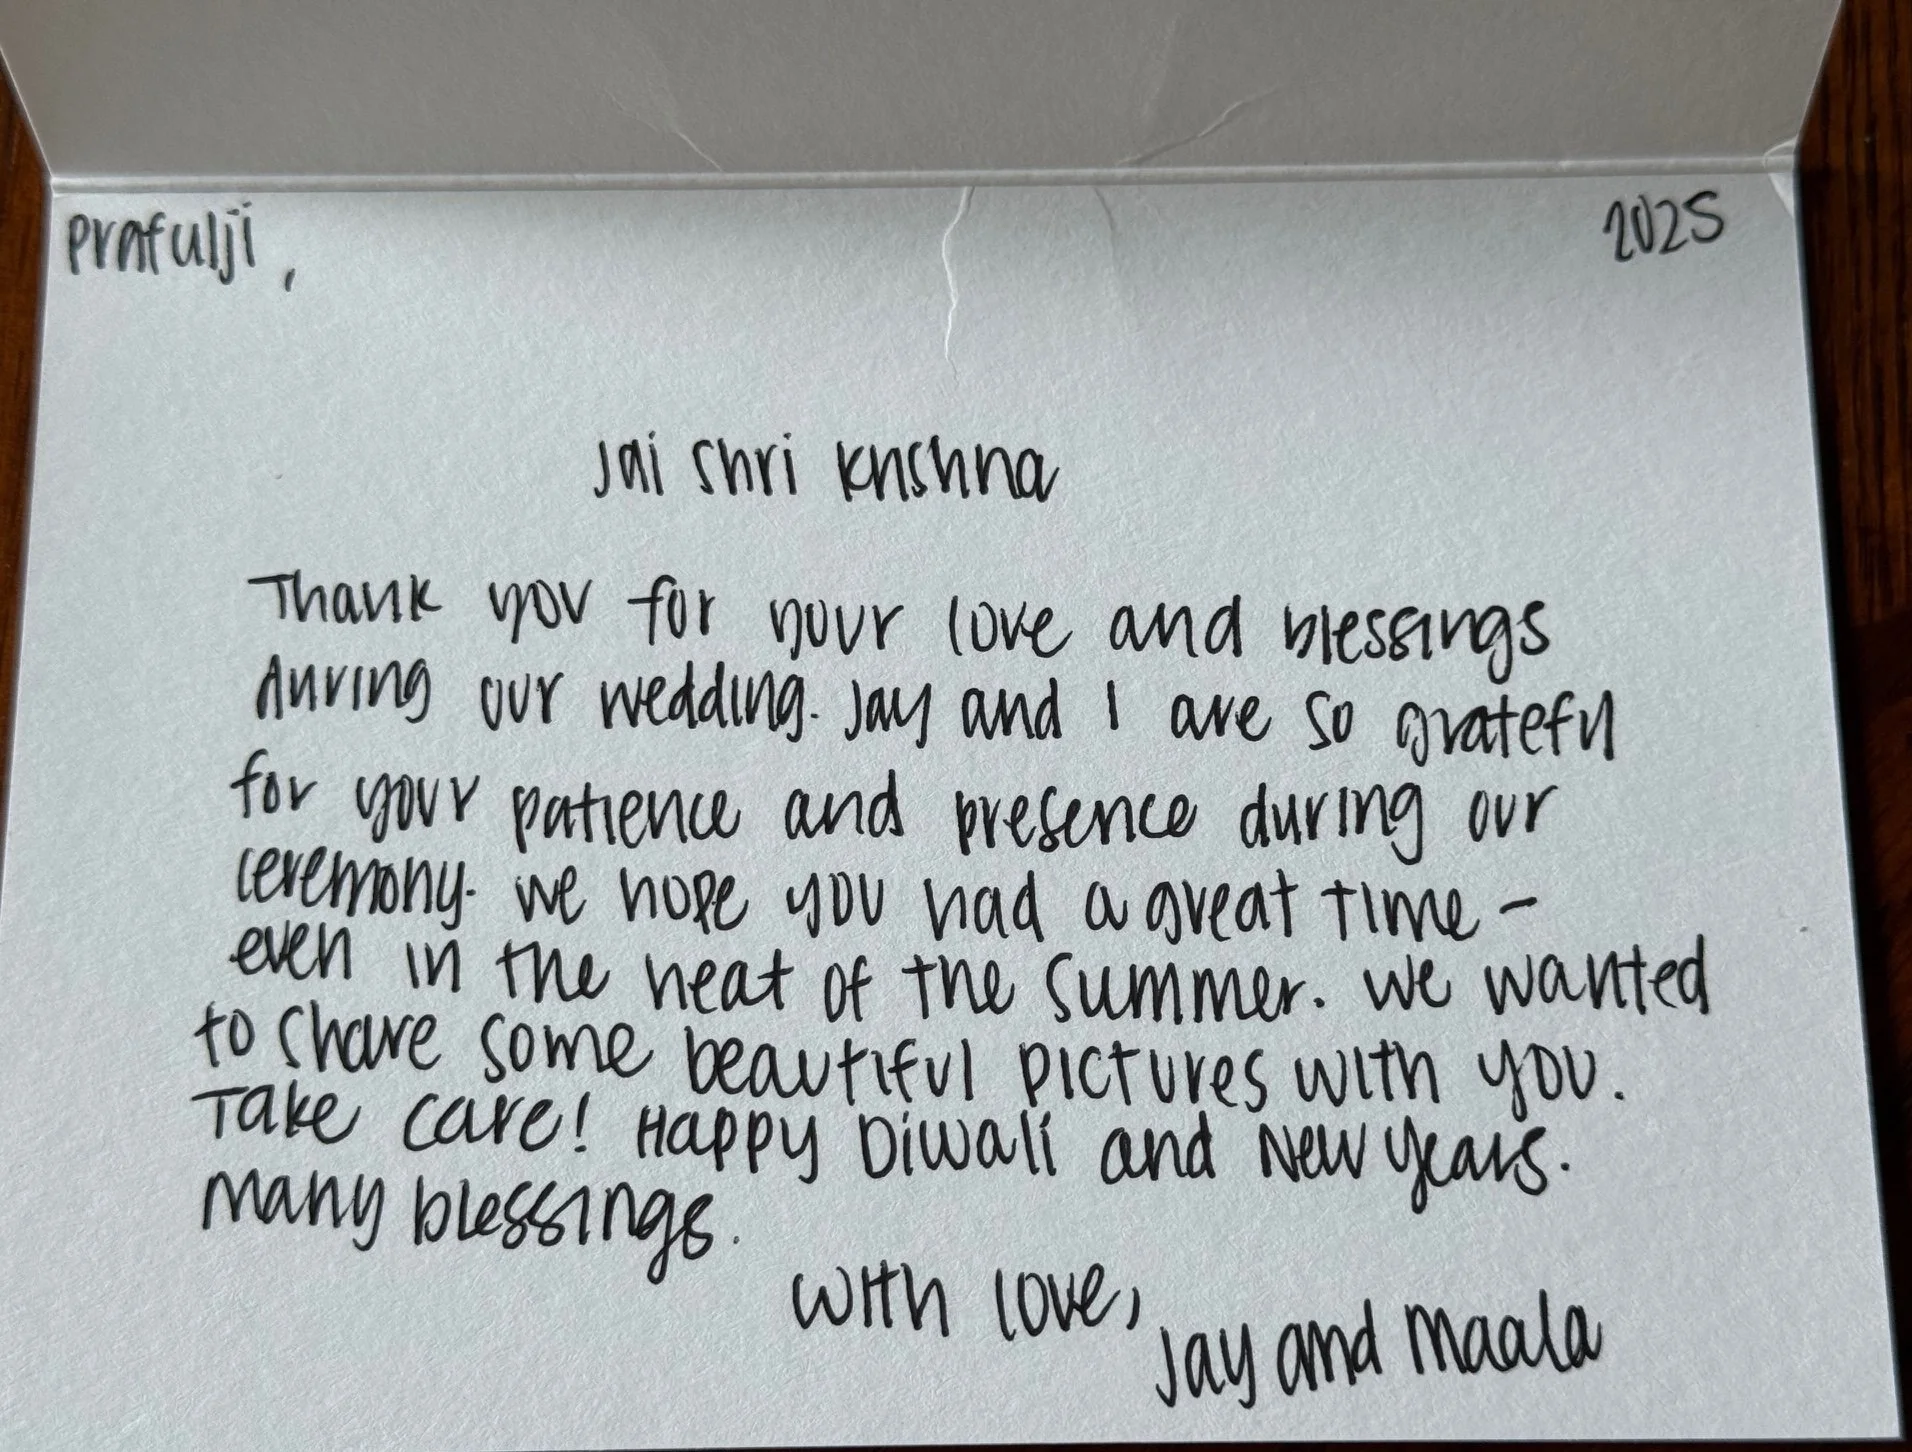 Prafulji, 2025
Jai Shri Krishna
Thank you for your love and blessings
during our wedding. Jay and I are so grateful
for your patience and presence during our
ceremony. We hope you had a great time –
even in the heat of the summer. We wanted
to share some beautiful pictures with you.
Take care! Happy Diwali and New Years.
Many blessings.
With love,
Jay and Maala